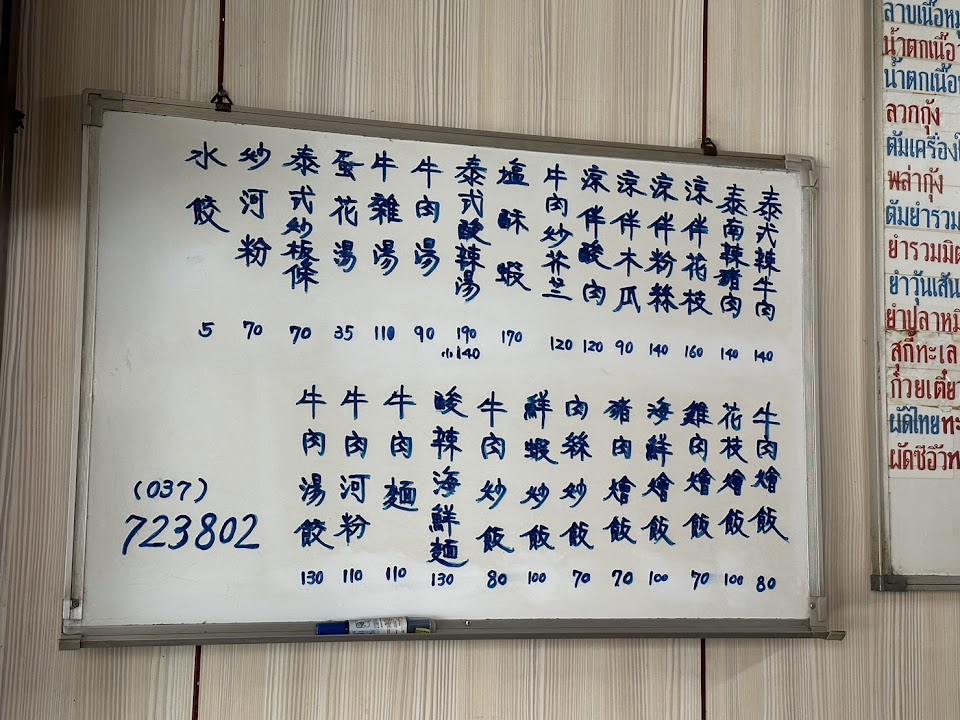 泰式辣牛肉 140
泰南辣豬肉 140
涼伴花枝 160
涼伴粉絲 140
涼伴木瓜 90
涼伴酸肉 120
牛肉炒芥兰 120
塩酥蝦 170
泰式酸辣湯 190
小140
牛肉湯 90
牛雜湯 110
蛋花湯 35
泰式炒板條 70
炒河粉 70
水餃 5
牛肉燴飯 80
花枝燴飯 100
雞肉燴飯 70
海鮮燴飯 100
豬肉燴飯 70
肉絲炒飯 70
鮮蝦炒飯 100
牛肉炒飯 80
酸辣海鮮麵 130
牛肉麵 110
牛肉河粉 110
牛肉湯餃 130
(037)
723802
ลาบเนื้อหมู
น้ำตกเนื้อ
น้ำตกเนื้อ
ลวกกุ้ง
ต้มเครื่องใ
พล่ากุ้ง
ต้มยำรวม
ยำรวมมิต
ยำวุ้นเส้น
ยำปลาหมึ
สุกี้ทะเล
ก๋วยเตี๋ย
ผัดไทยทะ
ผัดซีอิ๊วท